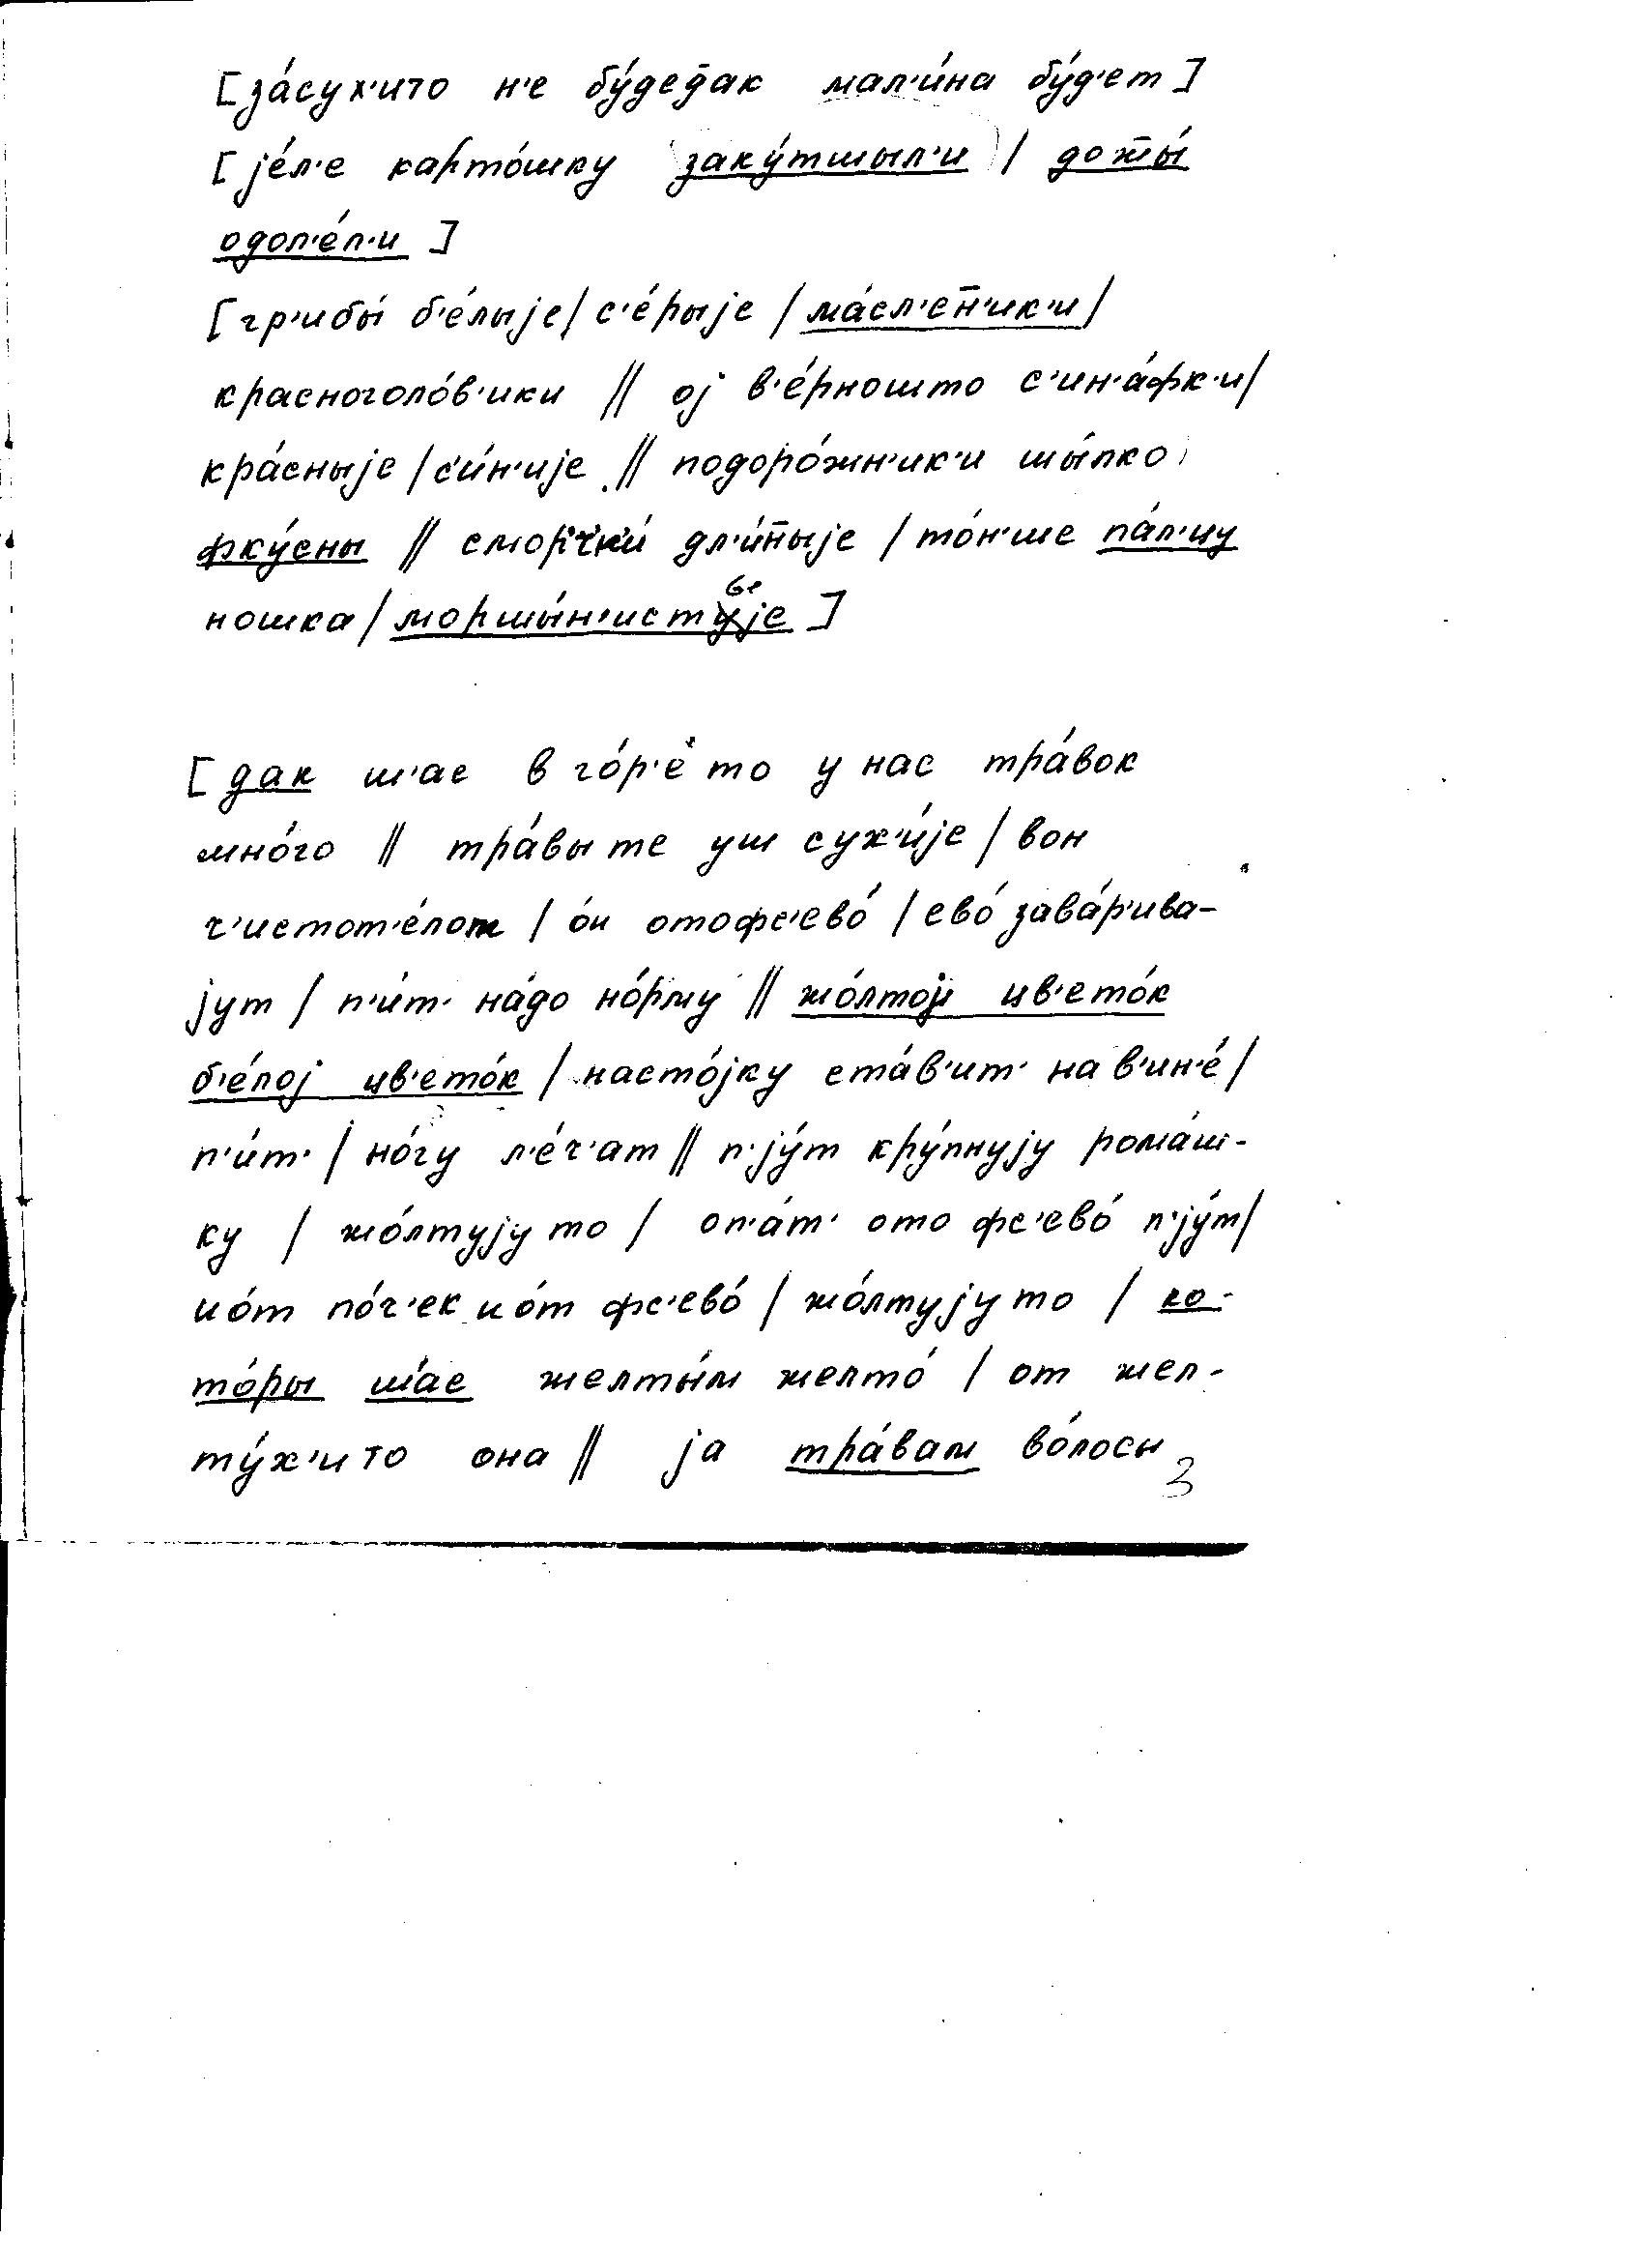 [за́сух'ито н'е бу́деd̄ак мал'и́на бу́д'ет]
[јéл'е карто́шку заку́тшыл'и / дож̄ы́
одол'е́л'и]
[гр'ибы́ б'е́лыје / с'е́рыје / ма́сл'ен̄'ик'и /
красноголо́в'ики // ој в'е́рношто с'ин'а́фк'и /
кра́сныје / с'и́н'ије // подоро́жн'ик'и шы́пко
фку́сны // сморч'к'и́ дл'и́н̄ыје / то́н'ше па́л'цу
ношка / моршы́н'истыје]
[дак ш'ас в го́р'е то у нас тра́вок
мно́го // тра́вы те уш сух'и́је / вон
ч'истот'е́лом / о́н отофс'ево́ / ево́ зава́р'ива-
јут / п'и́т' на́до но́рму // жо́лтој цв'ето́к
б'е́лој цв'ето́к / насто́јку ста́в'ит' на в'ин'е́ /
п'и́т' / но́гу л'е́ч'ат // п'јýт кру́пнују рома́ш-
ку / жо́лтују то / оп'а́т' ото фс'ево́ п'јýт /
ио́т по́ч'ек ио́т фс'ево́ / жо́лтују то / ко-
то́ры ш'ас желты́м желто́ / от жел-
ту́х'и то она // ја тра́вам во́лосы
3